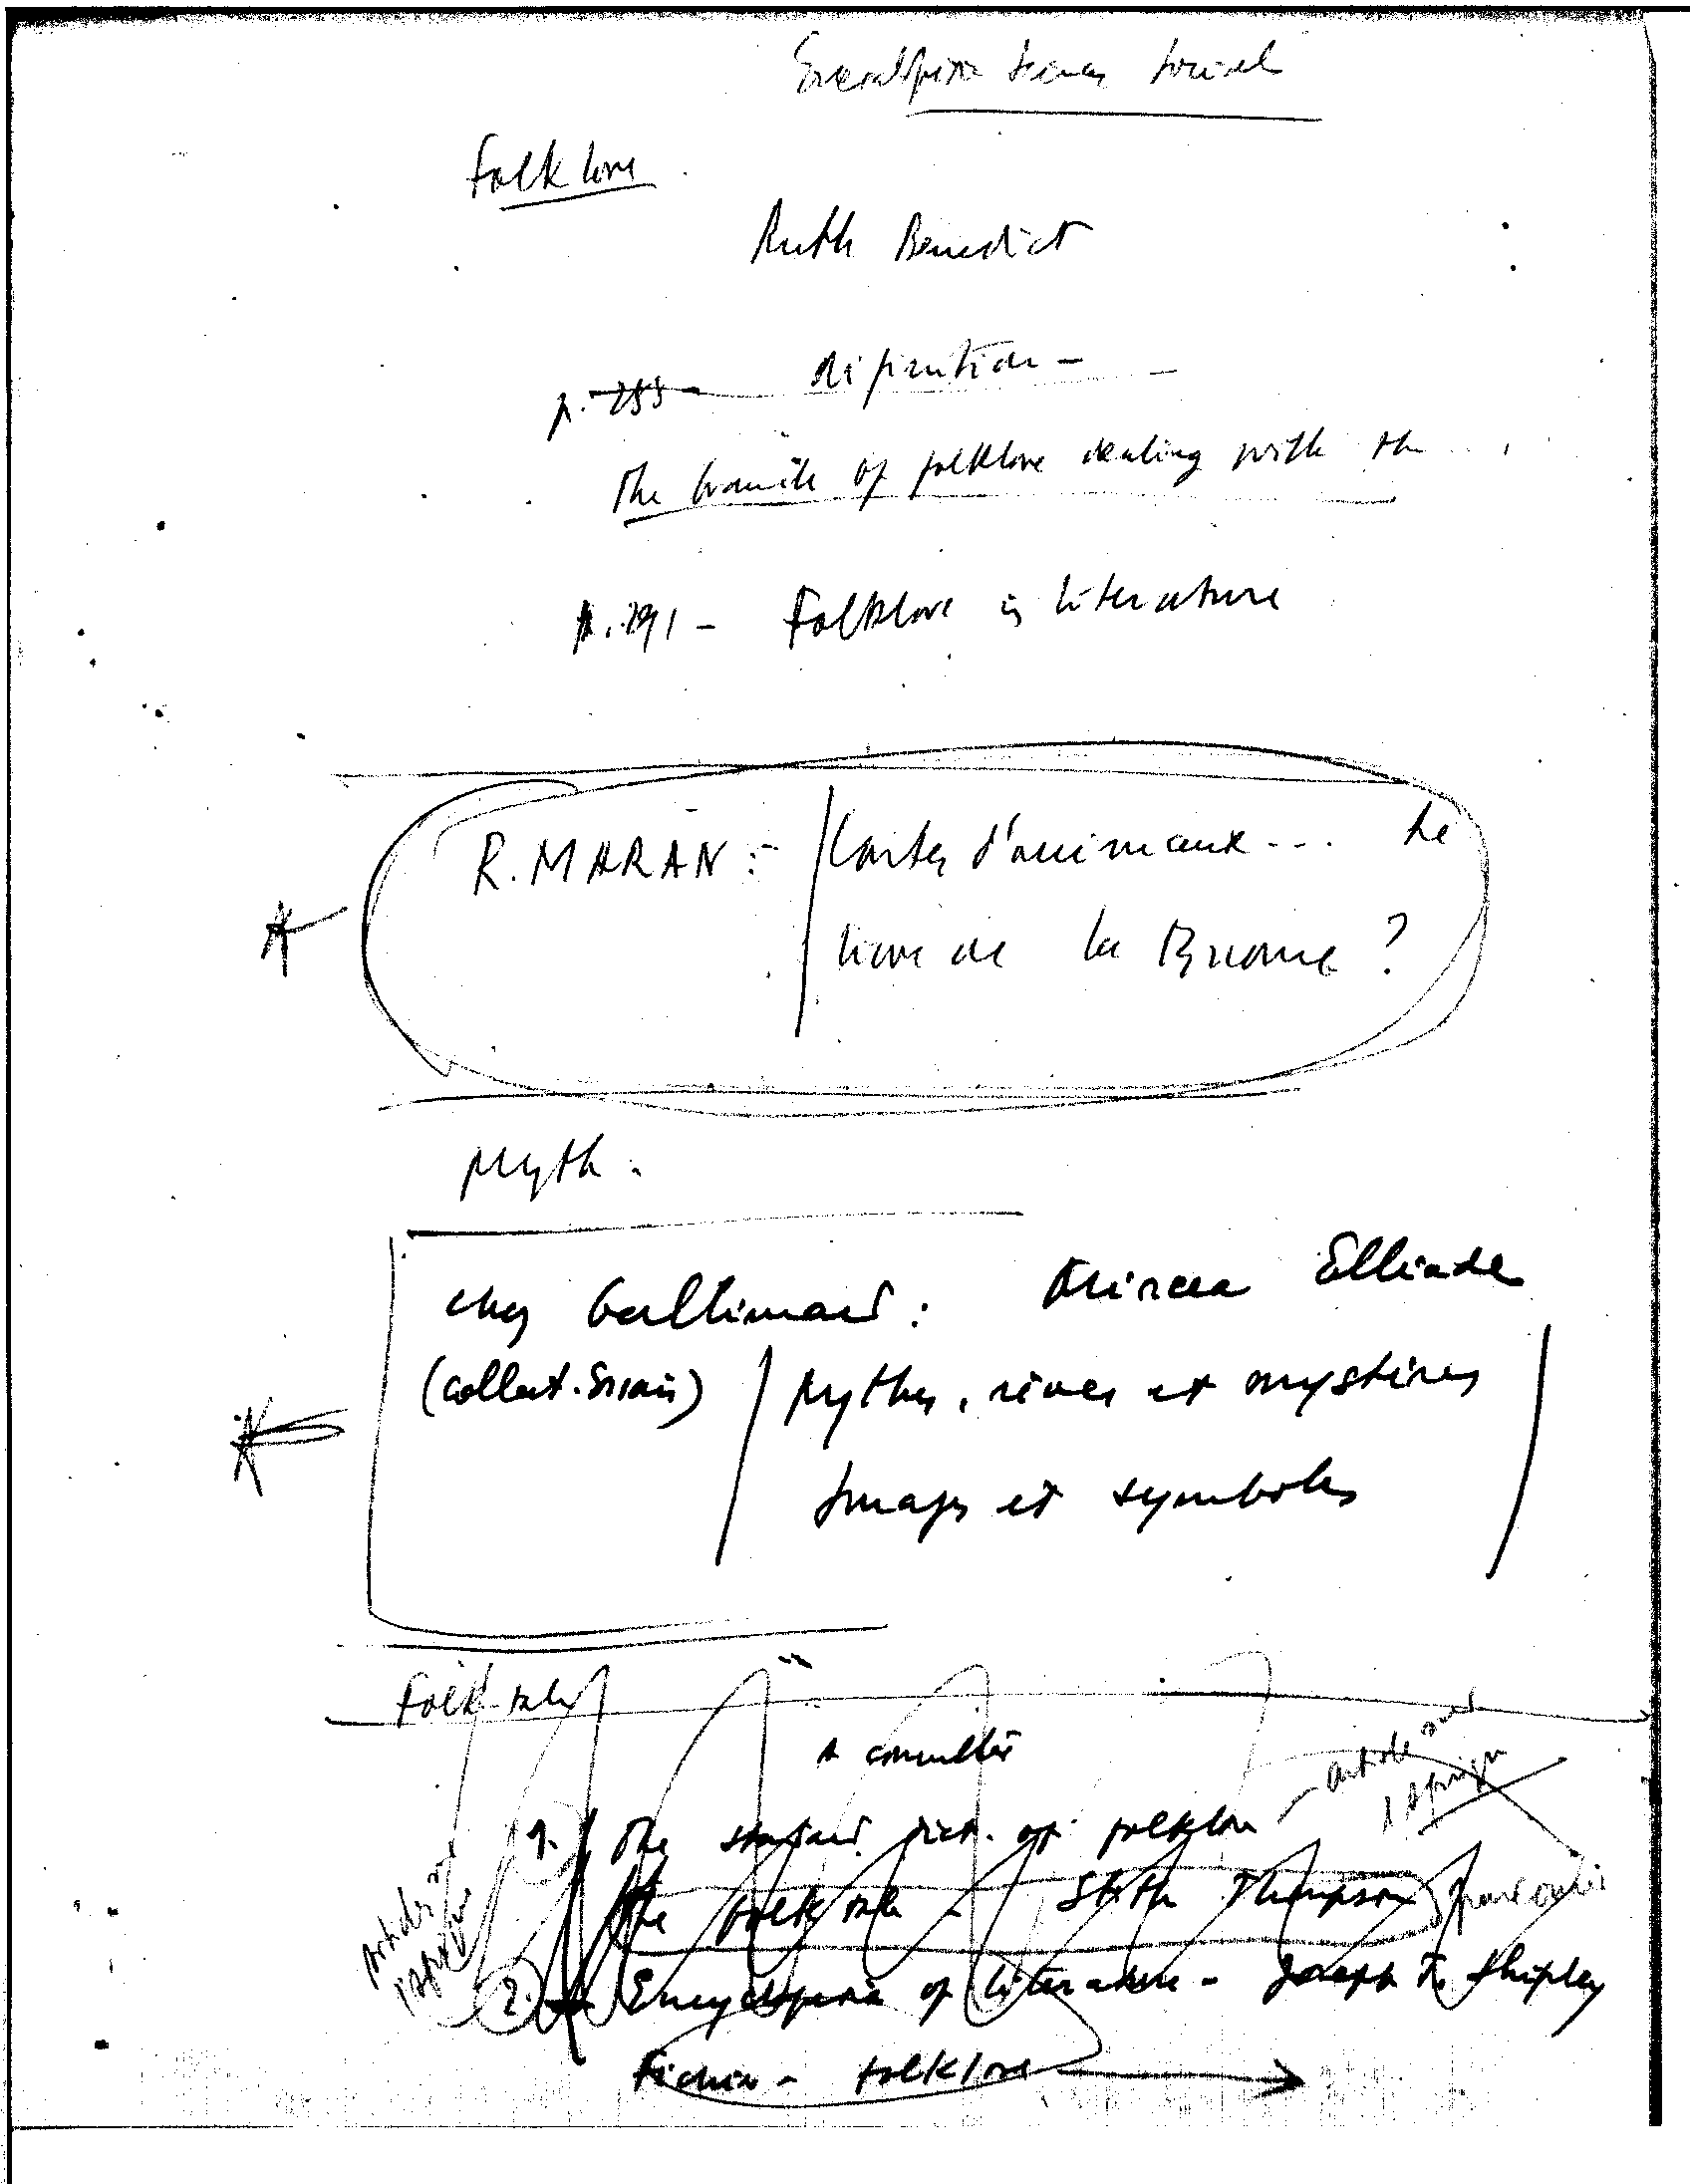 Encyclopedia Sciences Social
Folklore
Ruth Benedict
p. 288 definition -
The branch of folklore dealing with the ...
p. 291 - Folklore in literature
R. MARAN : Contes d'animaux ... Le
livre de la Brousse ?
Myth :
chez Gallimard : Mircea Elliade
(collect. Essais) Mythes, rêves et mystères
Images et symboles
Folk tales
à consulter
article sur
1. The standard dict. of folklore
The folk tale - Stith Thompson
2. Encyclopedia of literature - Joseph T. Shipley
Fiction - folklore